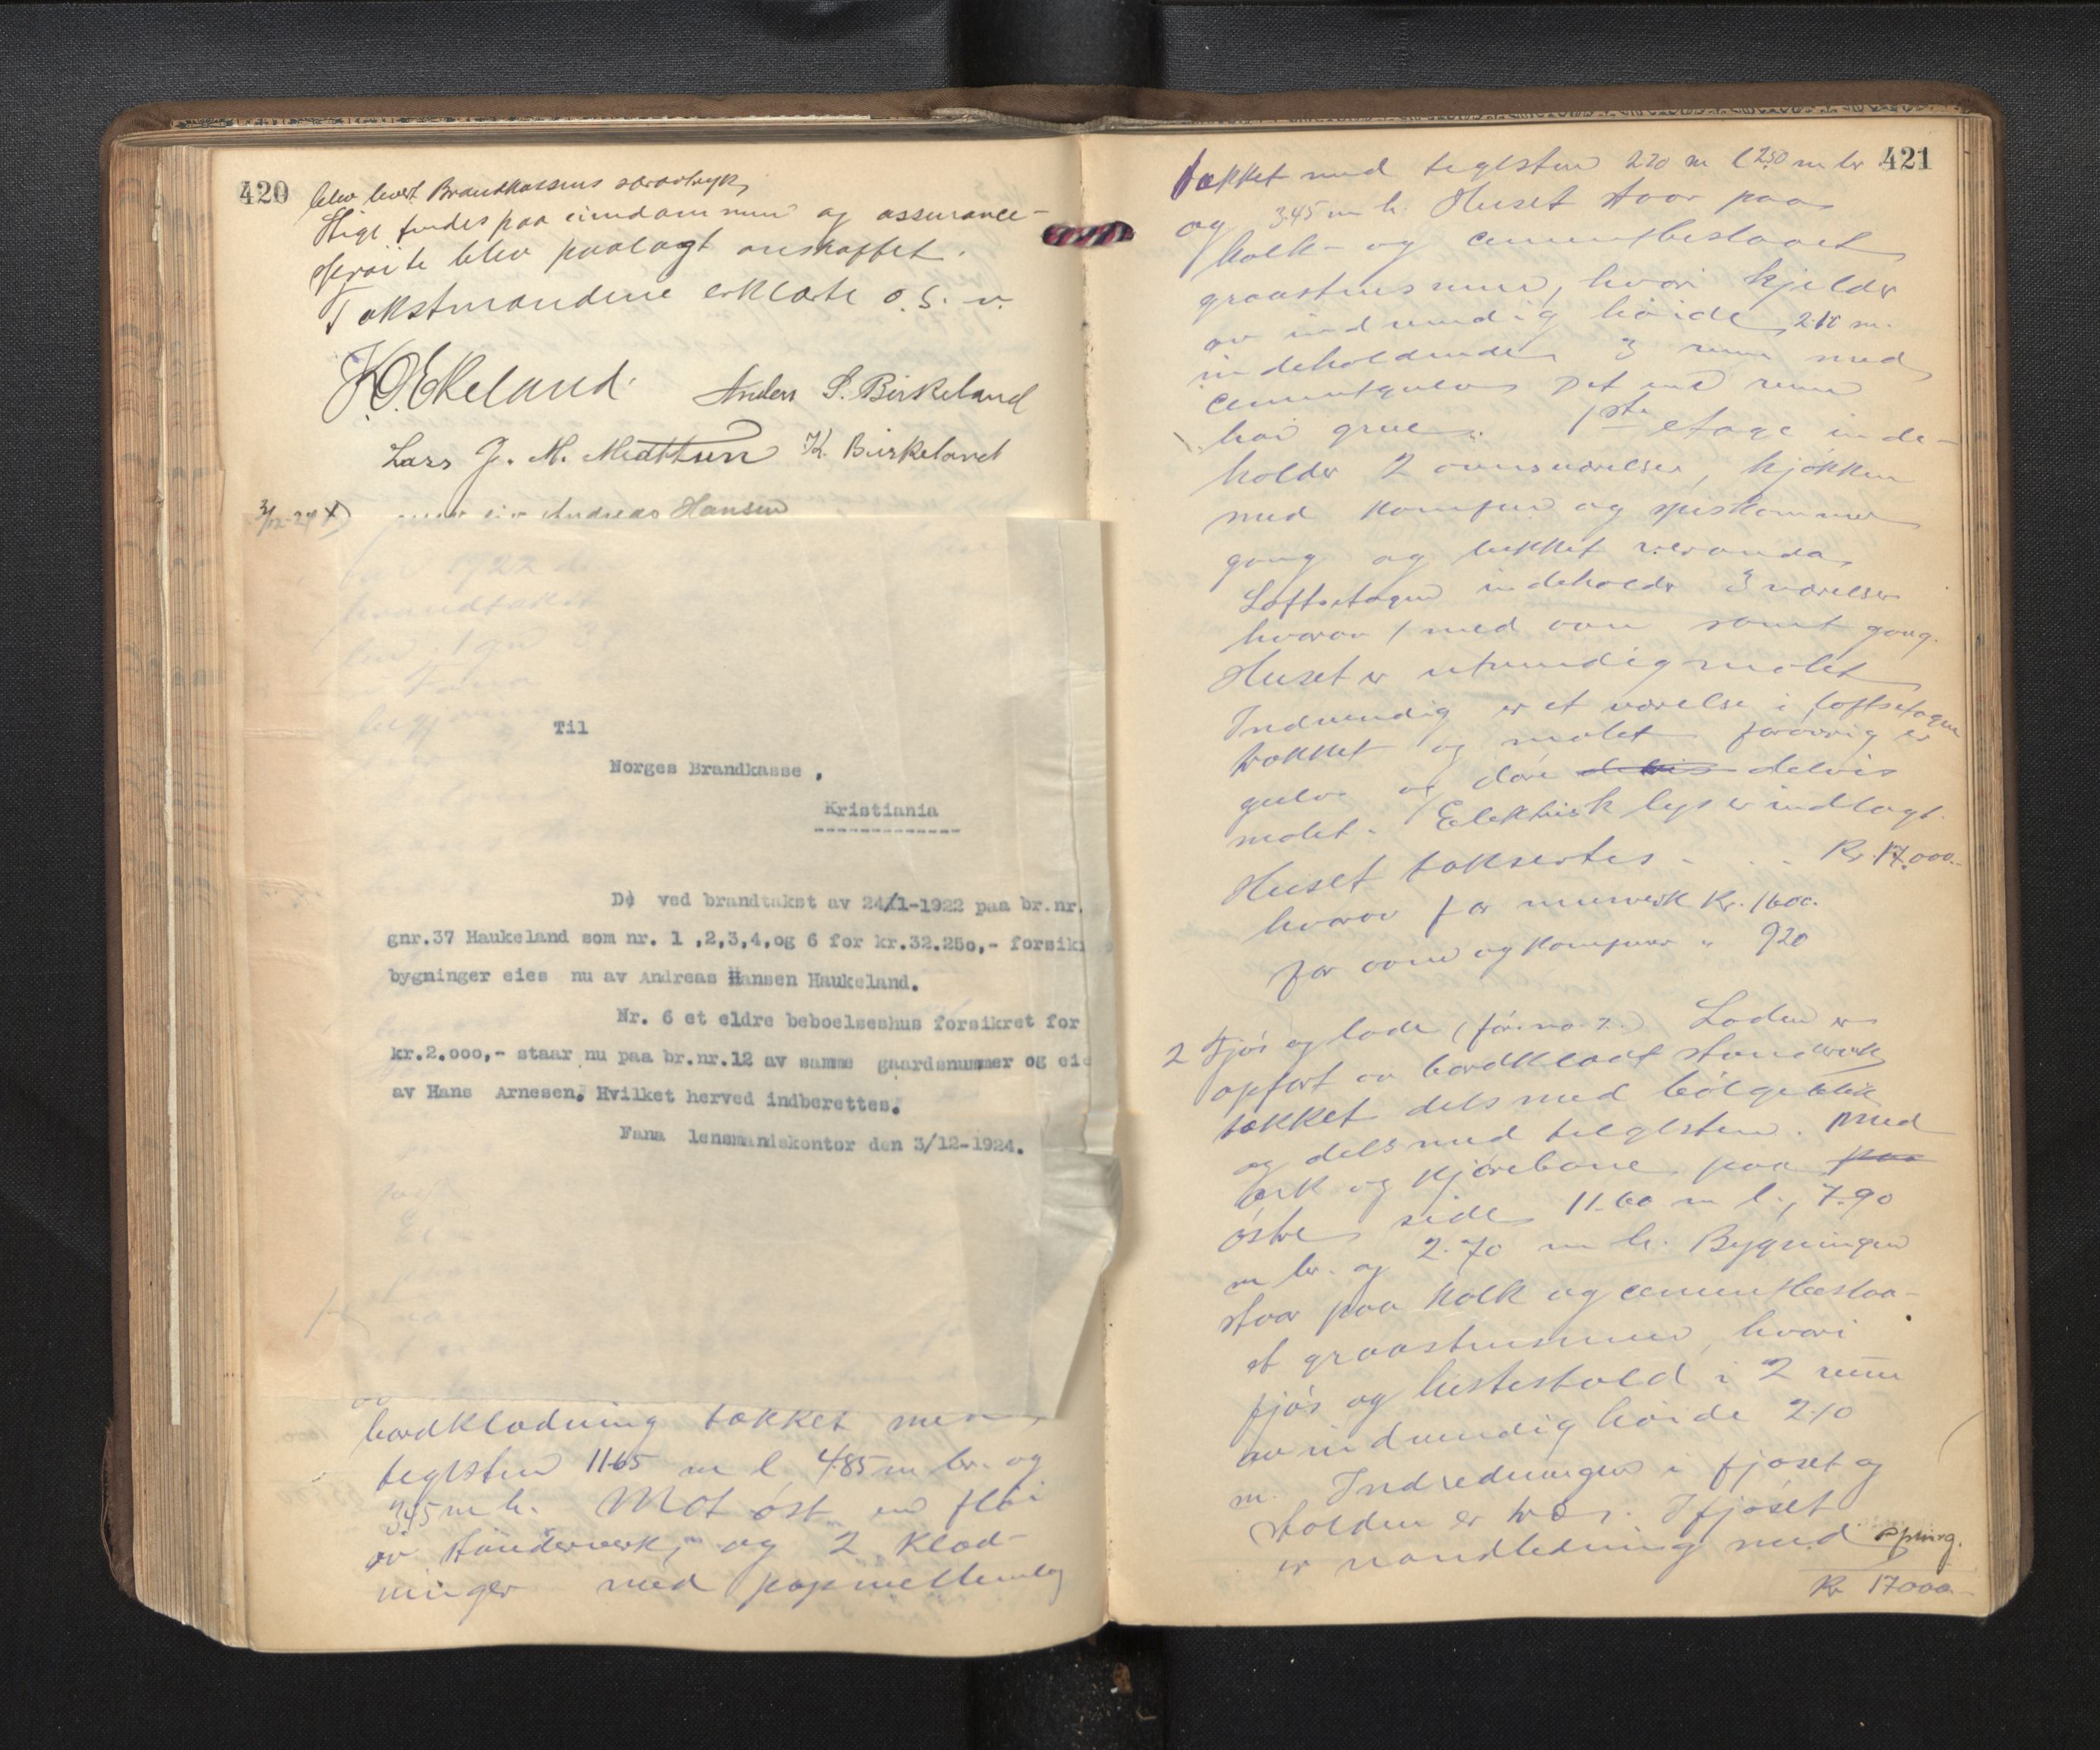 420
blev levert Brandkassens særavtryk,
Stige findes paa eiendommen og assurance-
sprøite blev paalagt anskaffet.
Takstmændene erklærte o.s.v.
K.O. Ekeland. Anders S. Birkeland
Lars J. M. Midttun K. Birkeland
3/12-24 X) eier Andreas Hansen
1922
brandtakst
Til
Norges Brandkasse .
Kristiania
-------------
De ved brandtakst av 24/1-1922 paa br.nr.
gnr.37 Haukeland som nr. 1 ,2,3,4,og 6 for kr.32.250,- forsik
bygninger eies nu av Andreas Hansen Haukeland.
Nr. 6 et eldre beboelseshus forsikret for
kr.2.000,- staar nu paa br.nr.12 av samme gaardsnummer og eie
av Hans Arnesen. Hvilket herved indberettes.
Fana lensmandskontor den 3/12-1924.
bordklædning tækket med
teglsten 11.65 m l 4.85 m br. og
3.45 m h. Mot øst en fløi
av stænderverk, og 2 klæd-
ninger med papmellemlæg
421
tækket med teglsten 2.20 m l 2.50 m br
og 3.45 m h. Huset staar paa
kalk- og cementbeslaaet
graastensmur, hvori kjelder
av indvendig høide 2.10 m.
indeholdende 3 rum med
cementgulv. Det ene rum
har grue. 1ste etage inde-
holder 2 ovnsværelser, kjøkken
med komfur og spiskammer
gang og lukket veranda,
Loftsetagen indeholder 3 værelser
hvorav 1 med ovn samt gang.
Huset er utvendig malet
Indvendig er et værelse i loftsetagen
trækket og malet forøvrig er
gulv og døre delvis delvis
malet. Elektrisk lys er indlagt.
Huset taksertes - . . Kr. 17.000.-
hvorav for murverk Kr. 1600.
for ovne og komfurer " 920
2 Fjøs og lade (før no. 2.) Laden er
opført av bordklædt standverk
tækket dels med bølgeblik
og dels med teglsten. med
ark og kjørebane paa paa
østre side 11.60 m l., 7.90
m br. og 2.70 m h. Bygningen
staar paa kalk og cementbeslaa-
et graastensmur, hvori
fjøs og hestestald i 2 rum
av indvendig høide 2.10
m. Indredningen i fjøset og
stalden er træ. I fjøset
er vandledning med spring.
Kr 17000.-